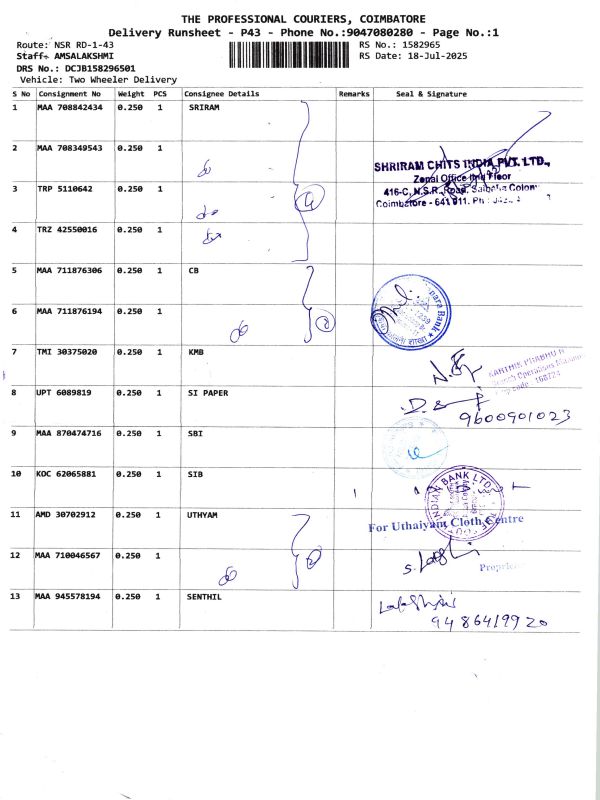 THE PROFESSIONAL COURIERS, COIMBATORE
Delivery Runsheet - P43 - Phone No.:9047080280 - Page No.:1
Route: NSR RD-1-43 RS No.: 1582965
Staff: AMSALAKSHMI RS Date: 18-Jul-2025
DRS No.: DCJB158296501
Vehicle: Two Wheeler Delivery
S No Consignment No Weight PCS Consignee Details Remarks Seal & Signature
1 MAA 708842434 0.250 1 SRIRAM
2 MAA 708349543 0.250 1
SHRIRAM CHITS INDIA PVT. LTD.,
Zonal Office Floor
3 TRP 5110642 0.250 1 4
416-C, N.S.R. Road, Saibaba Colony
Coimbatore - 641 011. Ph
4 TRZ 42550016 0.250 1
5 MAA 711876306 0.250 1 CB
Bank
6 MAA 711876194 0.250 1 2
7 TMI 30375020 0.250 1 KMB
KARTHIK PRABHU
Branch Operations
8 UPT 6089819 0.250 1 SI PAPER
9600901023
9 MAA 870474716 0.250 1 SBI
10 KOC 62065881 0.250 1 SIB
INDIAN BANK LTD.
11 AMD 30702912 0.250 1 UTHYAM
For Uthaiyam Cloth Centre
12 MAA 710046567 0.250 1 2
13 MAA 945578194 0.250 1 SENTHIL
9486419920